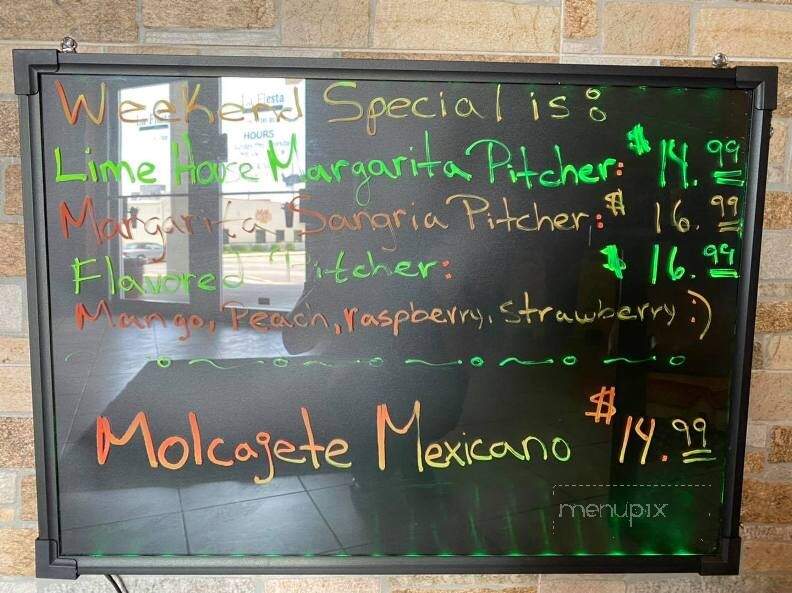 Weekend Special is:
Lime House Margarita Pitcher: $14.99
Margarita Sangria Pitcher: $16.99
Flavored Pitcher: $16.99
Mango, Peach, raspberry, Strawberry :)
Molcajete Mexicano $14.99
menupix
Fiesta
HOURS